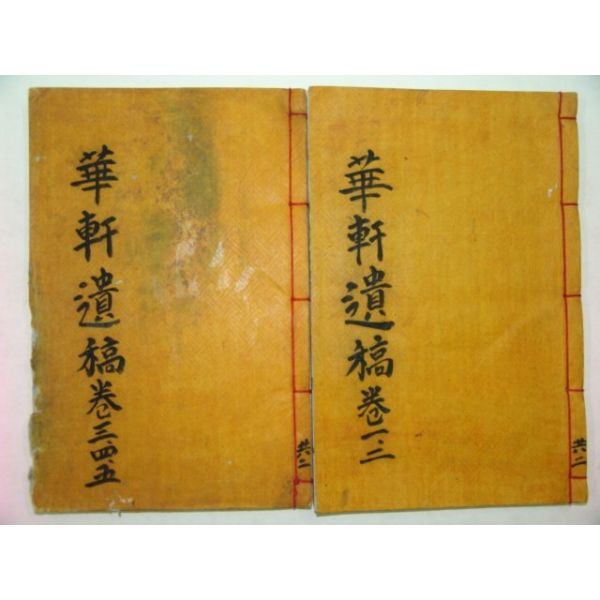 華軒遺稿卷一.二
共二
華軒遺稿卷三.四.五
共二